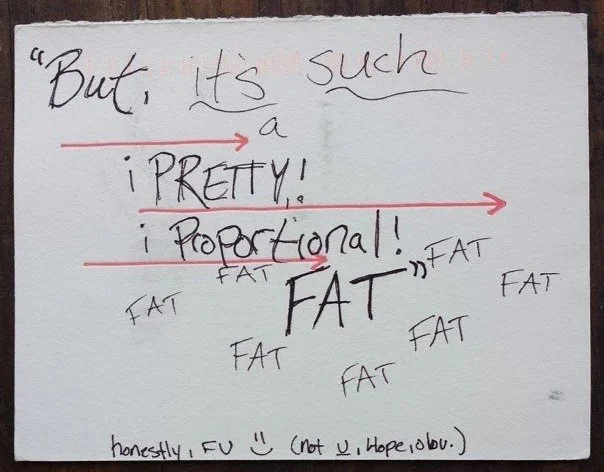 "But, it's such
a
¡ PRETTY!
¡ Proportional!
FAT"
FAT
FAT
FAT
FAT
FAT
FAT
FAT
honestly, FU (not U, Hope, obv.)